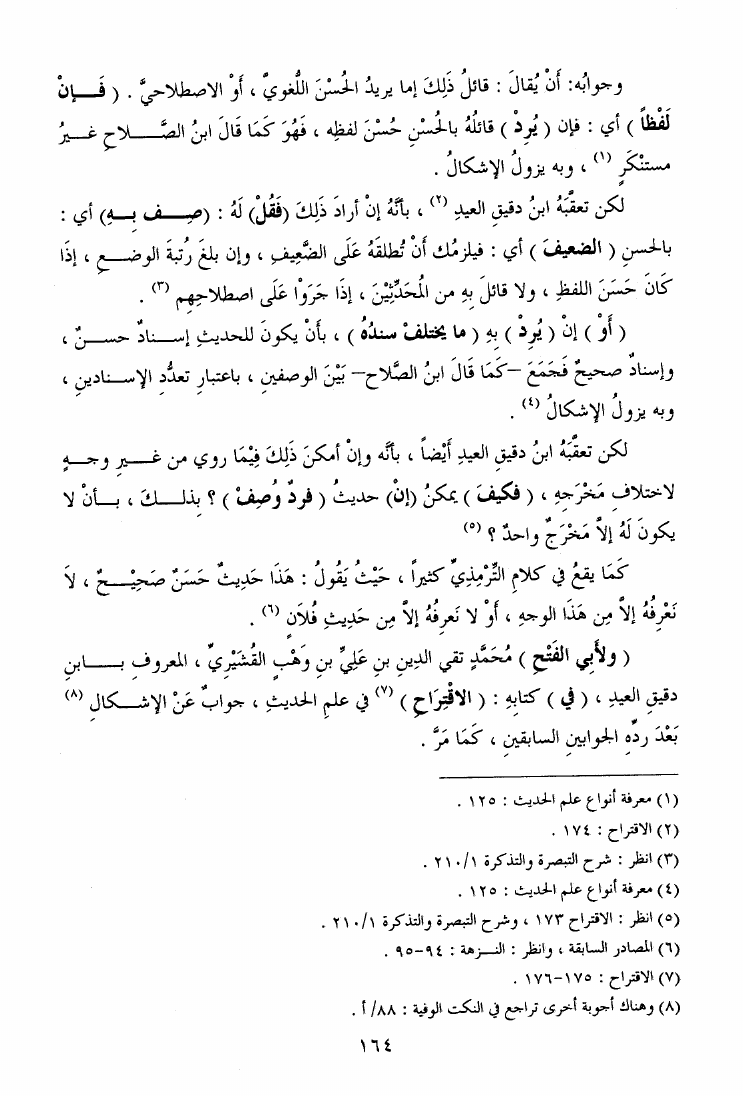 وجوابُه: أَنْ يُقالَ : قائلُ ذَلِكَ إما يريدُ الحُسْنَ اللُّغويَّ ، أَوْ الاصطلاحيَّ . ( فَإِنْ
لَفْظاً ) أي : فإن ( يُرِدْ ) قائلُهُ بالحُسْنِ حُسْنَ لفظِه ، فَهُوَ كَمَا قَالَ ابنُ الصَّلاحِ غيرُ
مستنْكَرٍ (١) ، وبه يزولُ الإشكالُ .
لكن تعقَّبَهُ ابنُ دقيقِ العيدِ (٢) ، بأنَّهُ إنْ أرادَ ذَلِكَ (فَقُلْ) لَهُ : (صِف بِهِ) أي :
بالحسنِ ( الضعيفَ ) أي : فيلزمُك أَنْ تُطلقَهُ عَلَى الضَّعِيفِ ، وإن بلغَ رُتبةَ الوضعِ ، إذَا
كَانَ حَسَنَ اللفظِ ، ولا قائلَ بِهِ من المُحَدِّثِيْنَ ، إذَا جَرَوْا عَلَى اصطلاحِهم (٣) .
( أَوْ ) إنْ ( يُرِدْ ) بِهِ ( ما يختلفْ سندُهُ ) ، بأنْ يكونَ للحديثِ إسنادٌ حسنٌ ،
وإسنادٌ صحيحٌ فَجَمَعَ –كَمَا قَالَ ابنُ الصَّلاحِ– بَيْنَ الوصفينِ ، باعتبارِ تعدُّدِ الإسنادينِ ،
وبه يزولُ الإشكالُ (٤) .
لكن تعقَّبَهُ ابنُ دقيقِ العيدِ أَيْضاً ، بأنَّه وإنْ أمكنَ ذَلِكَ فِيْمَا روي من غيرِ وجهٍ
لاختلافِ مَخْرَجِهِ ، ( فكيفَ ) يمكنُ (إنْ) حديثُ ( فردٌ وُصِفْ ) ؟ بذلكَ ، بأنْ لا
يكونَ لَهُ إلاَّ مَخْرَجٌ واحدٌ ؟ (٥)
كَمَا يقعُ في كلامِ التِّرْمِذِيِّ كثيراً ، حَيْثُ يَقُولُ : هَذَا حَدِيثٌ حَسَنٌ صَحِيْحٌ ، لاَ
نَعْرِفُهُ إلاَّ مِن هَذَا الوجهِ ، أَوْ لا نَعرِفُهُ إلاَّ مِن حَدِيثِ فُلاَنٍ (٦) .
( ولأبي الفَتْحِ ) مُحَمَّدٍ تقي الدينِ بنِ عَلِيِّ بنِ وَهْبٍ القُشَيْرِيِّ ، المعروفِ بابنِ
دقيقِ العيدِ ، ( في ) كتابِهِ : ( الاقْتِرَاحِ ) (٧) في علمِ الحديثِ ، جوابٌ عَنْ الإشكالِ (٨)
بَعْدَ ردِّهِ الجوابينِ السابقينِ ، كَمَا مَرَّ .
(١) معرفة أنواع علم الحديث : ١٢٥ .
(٢) الاقتراح : ١٧٤ .
(٣) انظر : شرح التبصرة والتذكرة ٢١٠/١ .
(٤) معرفة أنواع علم الحديث : ١٢٥ .
(٥) انظر : الاقتراح ١٧٣ ، وشرح التبصرة والتذكرة ٢١٠/١ .
(٦) المصادر السابقة ، وانظر : النزهة : ٩٤-٩٥ .
(٧) الاقتراح : ١٧٥-١٧٦ .
(٨) وهناك أجوبة أخرى تراجع في النكت الوفية : ٨٨/ أ .
١٦٤